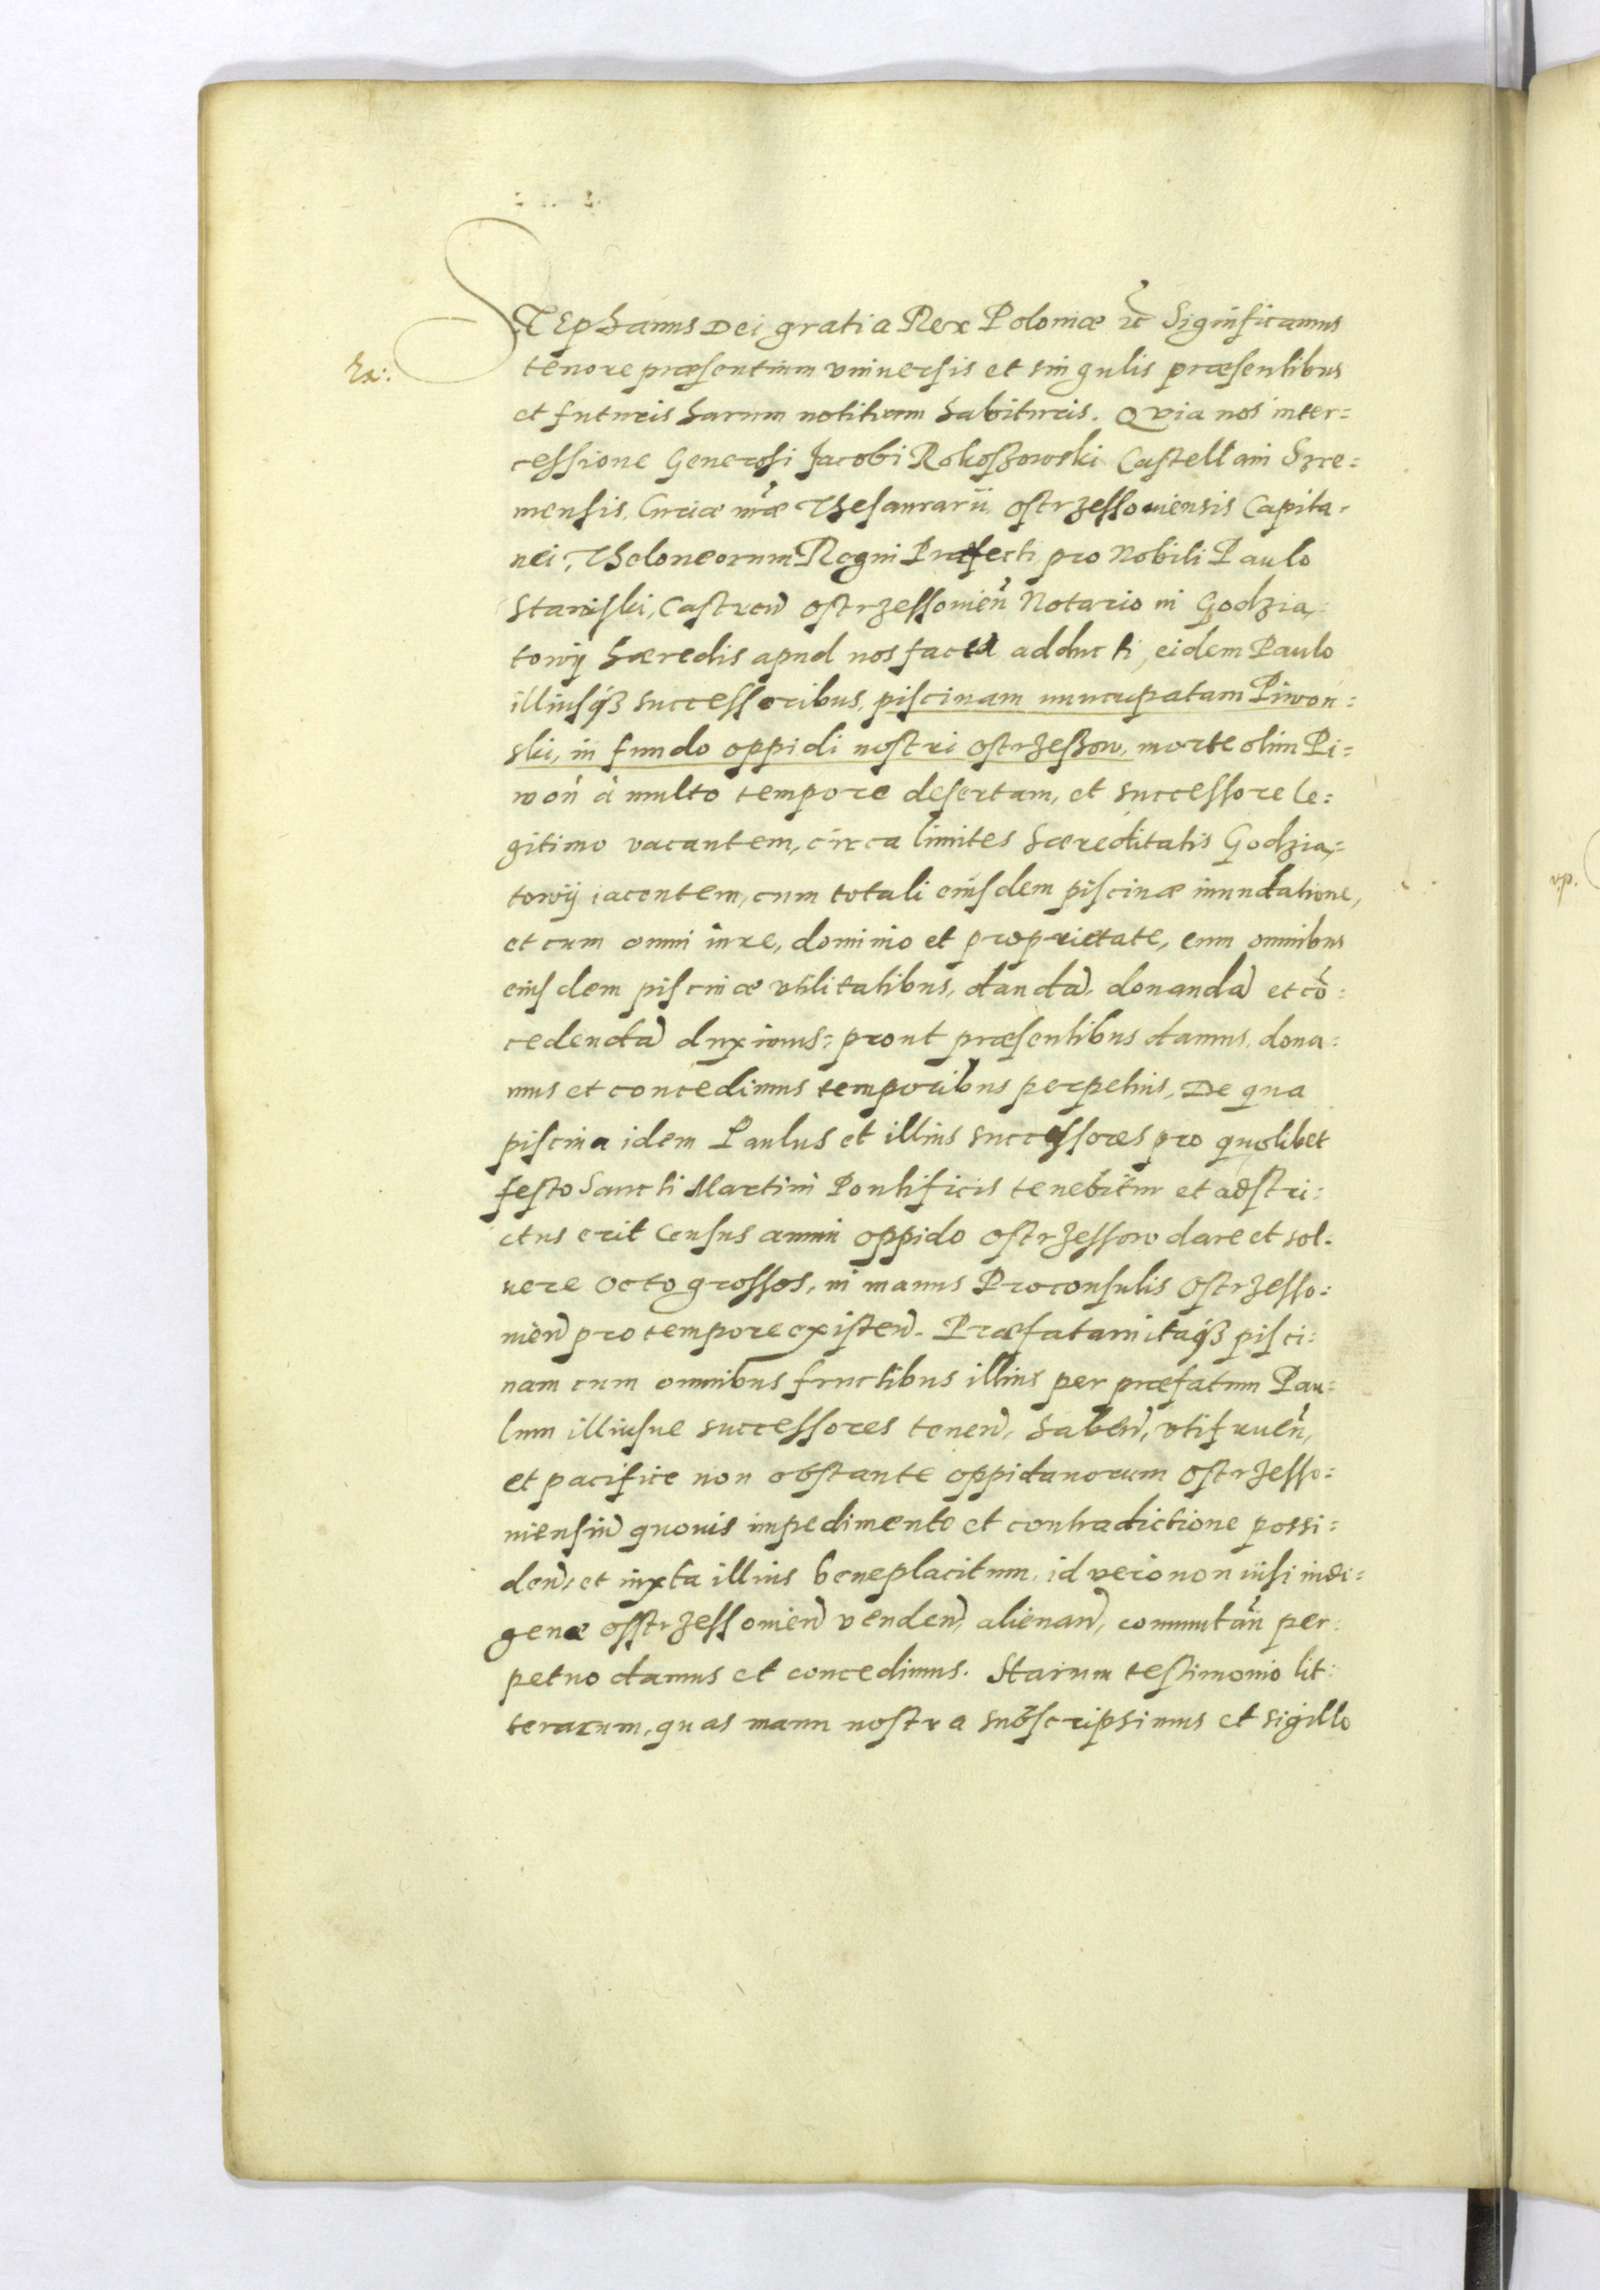 STEphanus Dei gratia Rex Poloniæ etc̃ Significamus
Ex:
tenore præsentium vniuersis et singulis præsentibus
et futuris harum notitiam habituris. Quia nos inter=
cessione Generosi Jacobi Rokoszowski Castellani Sre=
mensis, Curiæ nr̃æ Thesaurarii, Ostrzessouiensis Capita=
nei, Theloneorum Regni Præfecti, pro Nobili Paulo
Stawiski, Castren̄ Ostrzessouien̄ Notario in Godzia=
towy hæredis apud nos facta adducti, eidem Paulo
illiusq́ȝ successoribus, piscinam nuncupatam Piwon=
ski, in fundo oppidi nostri Ostrzeszow, morte olim Pi=
woń à multo tempore desertam, et successore le=
gitimo vacantem, circa limites hæreditatis Godzia=
towij iacentem, cum totali eiusdem piscinæ inundatione,
et cum omni iure, dominio et proprietate, cum omnibus
eiusdem piscinæ vtilitatibus, dandā, donandā et cō=
cedendā duximus: prout præsentibus damus, dona=
mus et concedimus temporibus perpetuis. De qua
piscina idem Paulus et illius successores pro quolibet
festo Sancti Martini Pontificis tenebitur et adstri=
ctus erit Census annui oppido Ostrzessow dare et sol=
uere octo grossos, in manus Proconsulis Ostrzesso=
uien̄ pro tempore existen̄. Præfatam itaq́ȝ pisci=
nam cum omnibus fructibus illius per præfatum Pau=
lum illiusue successores tenen̄, haben̄, vtifruen̄,
et pacifice non obstante oppidanorum Ostrzesso=
uiensiū quouis impedimento et contradictione possi=
den̄, et iuxta illius beneplacitum, id vero non nisi indi=
genæ Osstrzessouien̄ venden̄, alienan̄, commutan̄ per=
petuo damus et concedimus. Harum testimonio lit=
terarum, quas manu nostra subscripsimus et sigillo
vp.